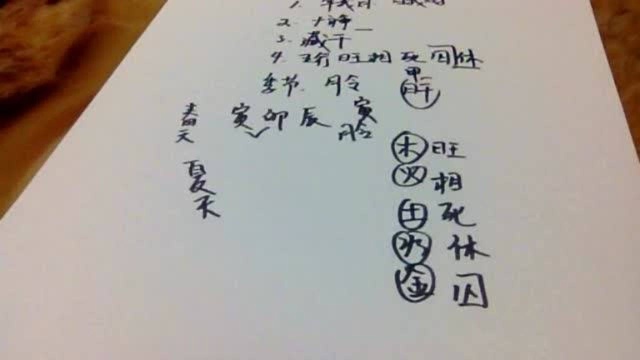 2. 十神
3. 藏干
4. 五行旺相死囚休
季节 月令 甲
日干
春天 寅卯辰 寅
月令
夏天
木旺
火相
土死
水休
金囚